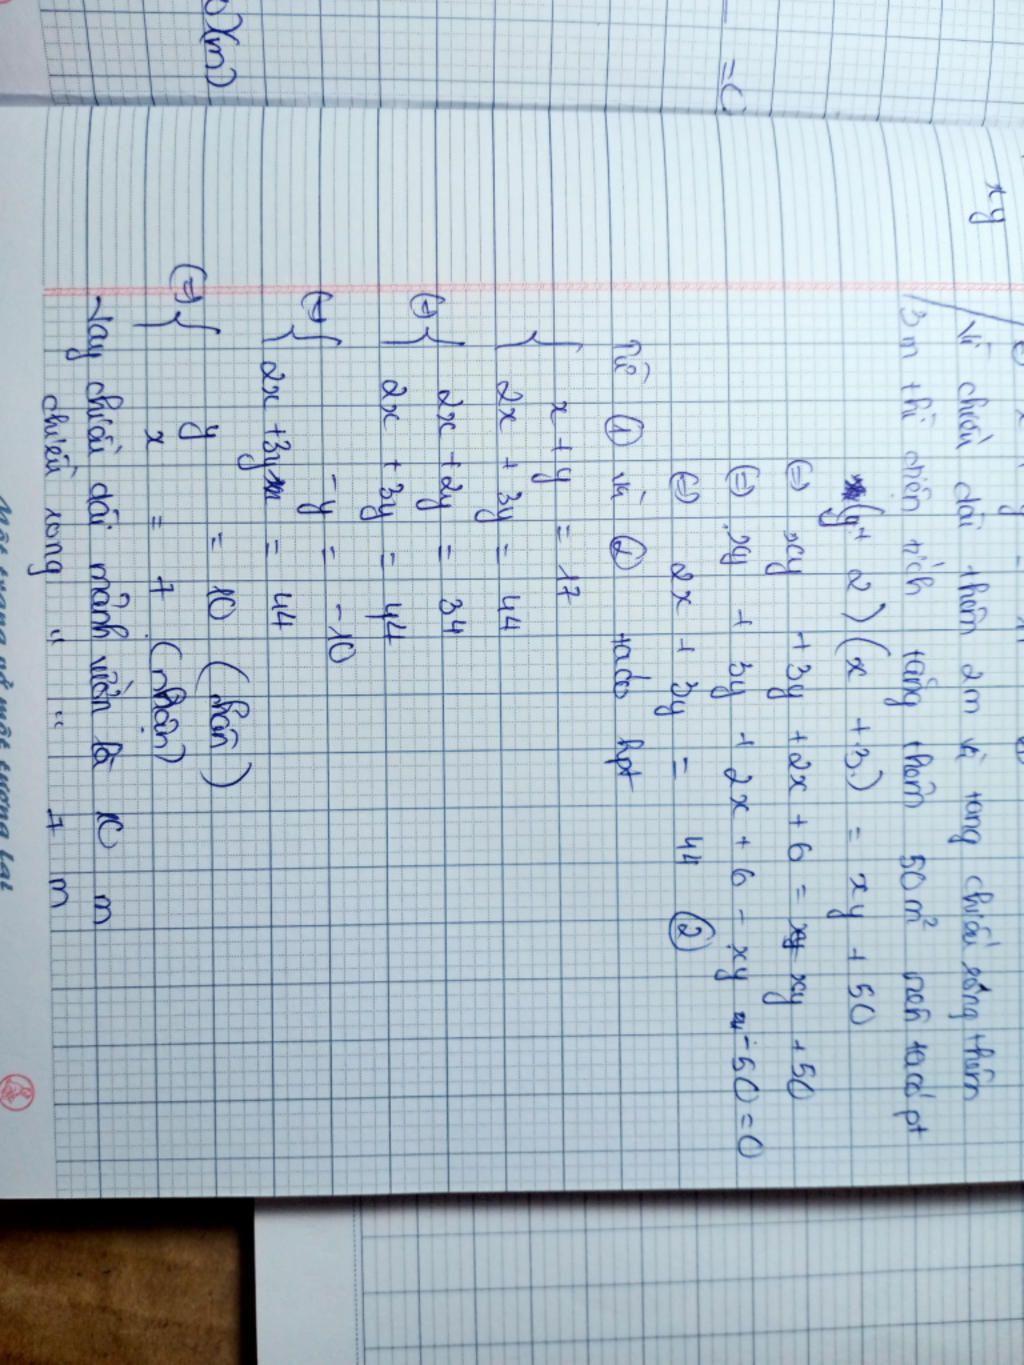 xy
Vì chiều dài thêm 2m và tăng chiều rộng thêm
3m thì diện tích tăng thêm 50 m² nên ta có pt
(y + 2)(x + 3) = xy + 50
⇔ xy + 3y + 2x + 6 = xy + 50
⇔ xy + 3y + 2x + 6 - xy - 50 = 0
⇔ 2x + 3y = 44 ②
Từ ① và ② ta có hpt
{ x + y = 17
2x + 3y = 44
⇔ { 2x + 2y = 34
2x + 3y = 44
⇔ { -y = -10
2x + 3y = 44
⇔ { y = 10 (nhận)
x = 7 (nhận)
Vậy chiều dài mảnh vườn là 10 m
chiều rộng " " 7 m
)(m)